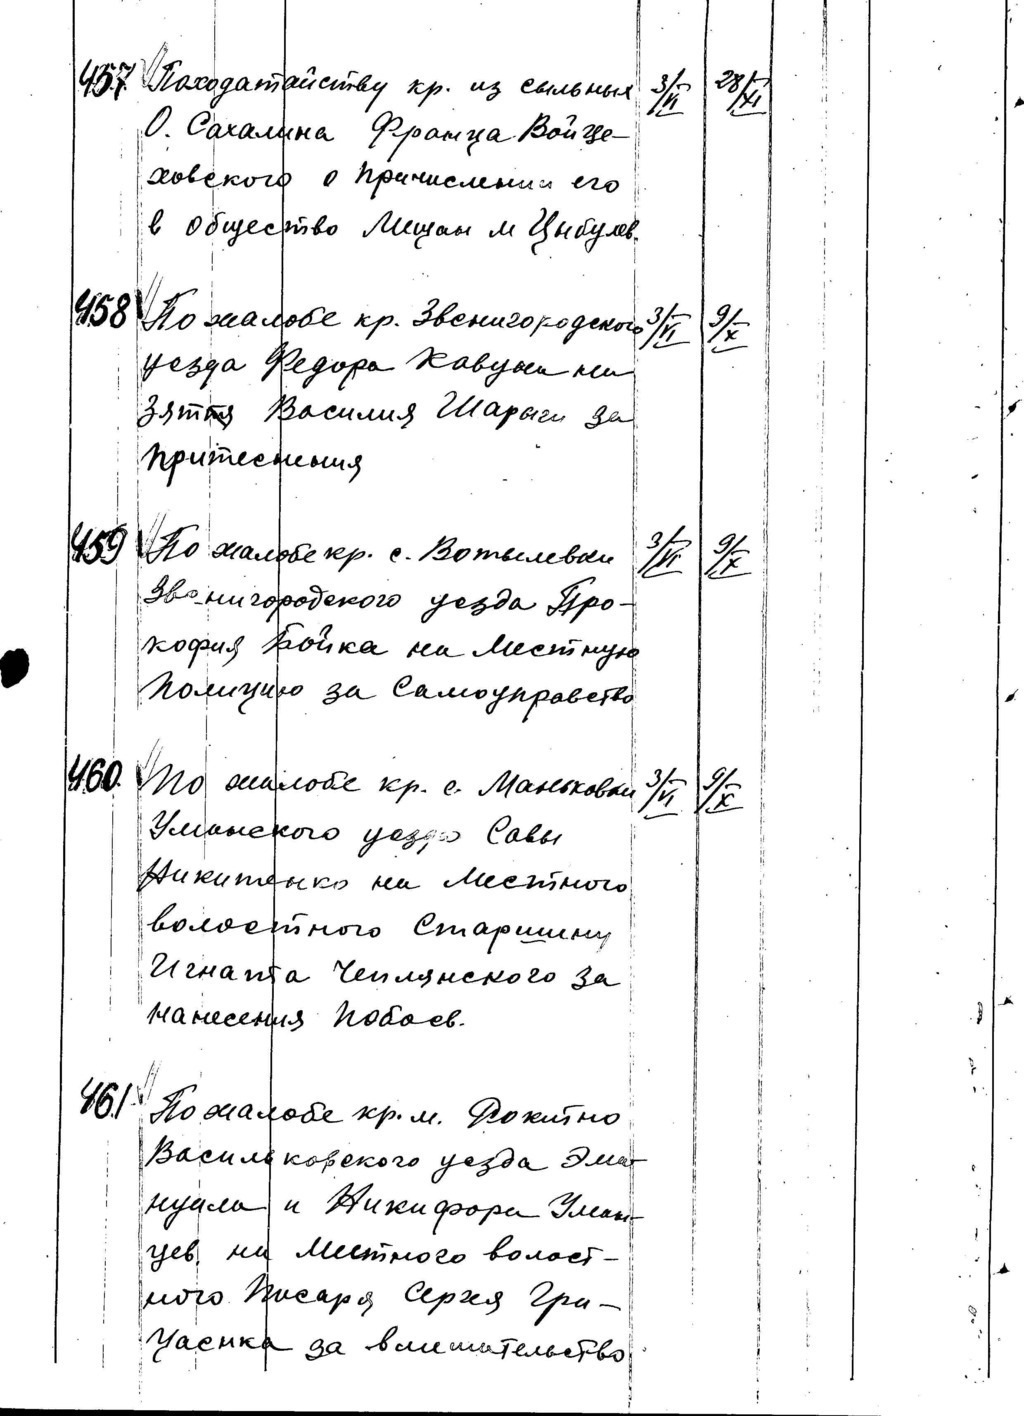 457 Походатайству кр. из сыльных 3/VI 28/XI
О. Сахалина Франца Войце-
ховского о причислении его
в общество Мещан м Цыбулев.
458 По жалобе кр. Звенигородского 3/VI 9/X
уезда Федора Кавуна на
Зяття Василия Шарыги за
притеснения
459 По жалобе кр. с. Вотылевки 3/VI 9/X
Звенигородского уезда Про-
кофия Бойка на Местную
Полицию за Самоуправство
460. По жалобе кр. с. Маньковки 3/VI 9/X
Уманского уезда Савы
Никитенко на Местного
волостного Старшину
Игната Чеплянского за
нанесения Побоев.
461 По жалобе кр. м. Рокитно
Васильковского уезда Эма-
нуила и Никифора Уман-
цев на Местного волост-
ного Писаря Сергея Гри-
цаенка за вмешательство